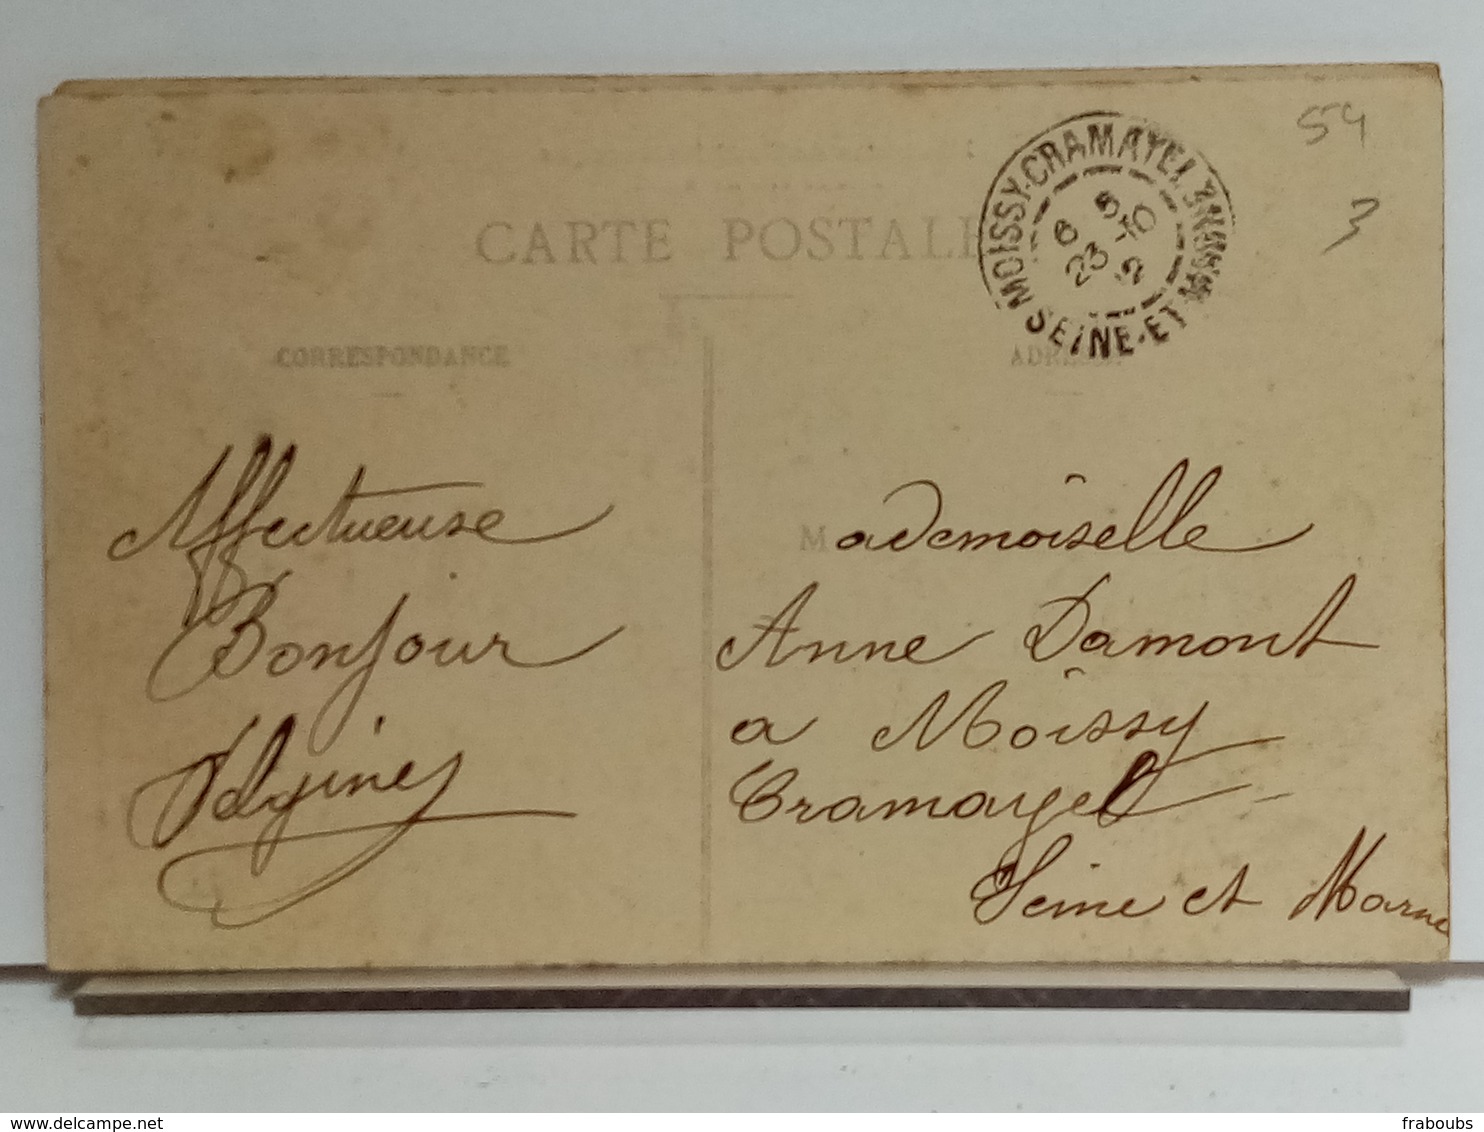 54
3
MOISSY-CRAMAYEL
6 5
23 10
5
SEINE-ET-MARNE
CARTE POSTALE
CORRESPONDANCE
ADRESSE
Affectueuse
Bonjour
Mademoiselle
Anne Damont
a Moissy
Cramayel
Seine et Marne
www.delcampe.net
fraboubs